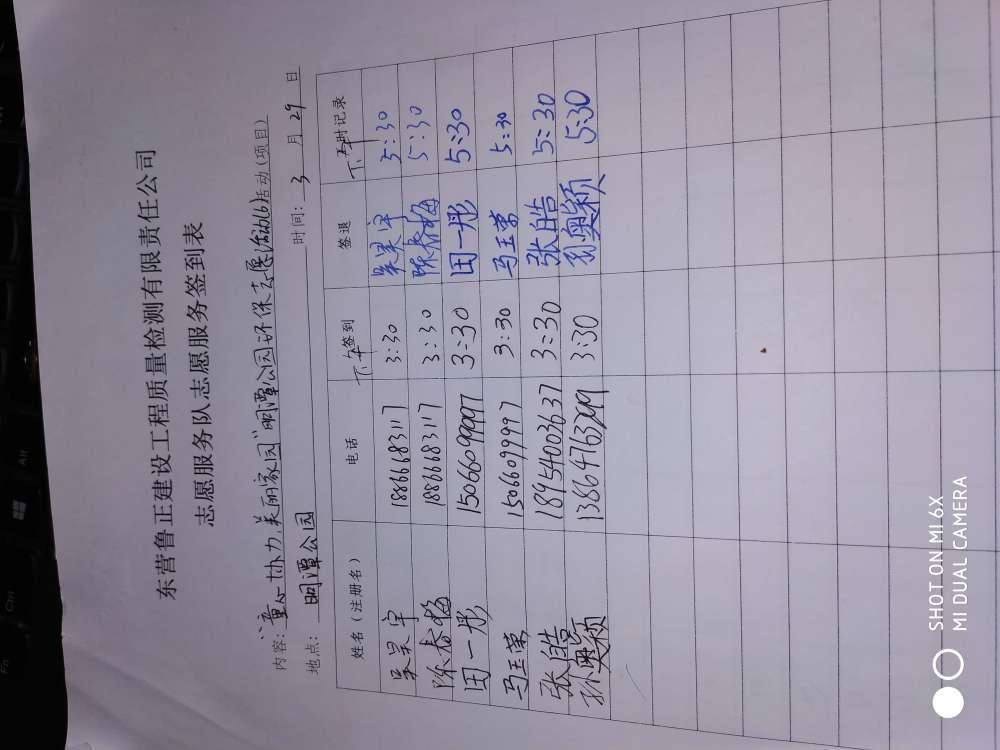 东营鲁正建设工程质量检测有限责任公司
志愿服务队志愿服务签到表
内容: “童心协力美丽家园”明潭公园环保志愿活动 活动(项目)
地点: 明潭公园 时间: 3 月 29 日
姓名(注册名) 电话 下午签到 签退 下午时记录
吴昊宇 18866683117 3:30 吴昊宇 5:30
陈春梅 18866683117 3:30 陈春梅 5:30
田一彤 15066099997 3:30 田一彤 5:30
马玉苗 15066099997 3:30 马玉苗 5:30
张皓 18954003637 3:30 张皓 5:30
孙奥颖 3:30 孙奥颖 5:30
SHOT ON MI 6X
MI DUAL CAMERA